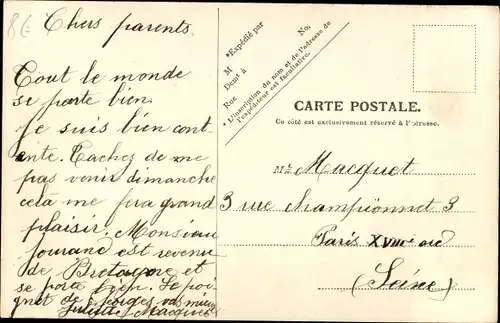 86
Chers parents.
Tout le monde
se porte bien.
Je suis bien cont-
ente. Tachez de me
pas venir dimanche
celà me fra grand
plaisir. Monsieur
Fourand est revenu
de Bretagne et
se porte bien. Le poi-
gnet de Georges va mieux
Juliette Macquet
*Expédié par
No.
M
Demt à
Rue
*L'inscription du nom et de l'adresse de
l'expéditeur est facultative.
CARTE POSTALE.
Ce côté est exclusivement réservé à l'adresse.
Mr. Macquet
3 rue championnet 3
Paris XVIIIe ard
(Seine)